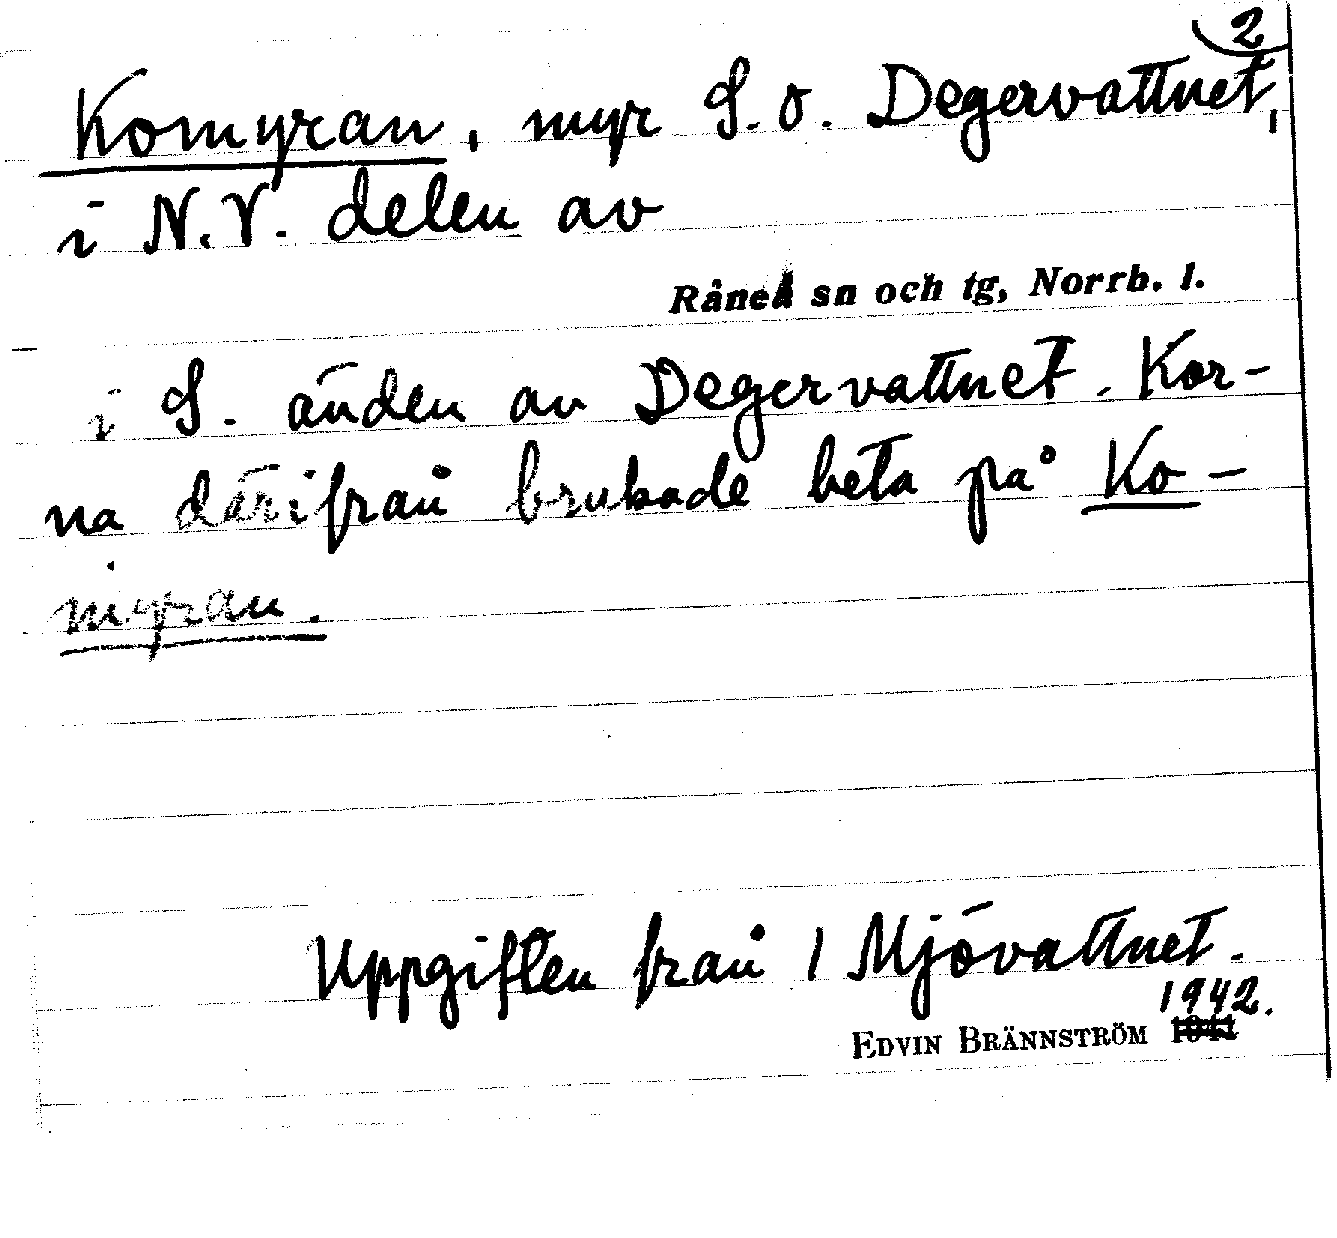 2
Komyran, myr S.O. Degervattnet,
i N.V. delen av
Råneå sn och tg, Norrb. l.
i S. änden av Degervattnet. Kor-
na därifrån brukade beta på Ko-
myran.
Uppgiften från 1 Mjövattnet.
1942.
EDVIN BRÄNNSTRÖM 1941